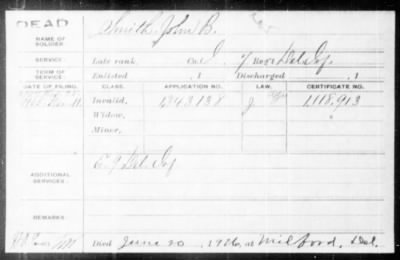 DEAD
NAME OF SOLDIER: Smith, John B.
SERVICE: Late rank, Co. Reg't Del Inf
TERM OF SERVICE: Enlisted , 1 Discharged , 1
DATE OF FILING. CLASS. APPLICATION NO. LAW. CERTIFICATE NO.
Invalid, 1343138 J 1118,913
Widow,
Minor,
ADDITIONAL SERVICES: 9 Del Inf
REMARKS:
Died June 20, 1926, at Milford, Del.